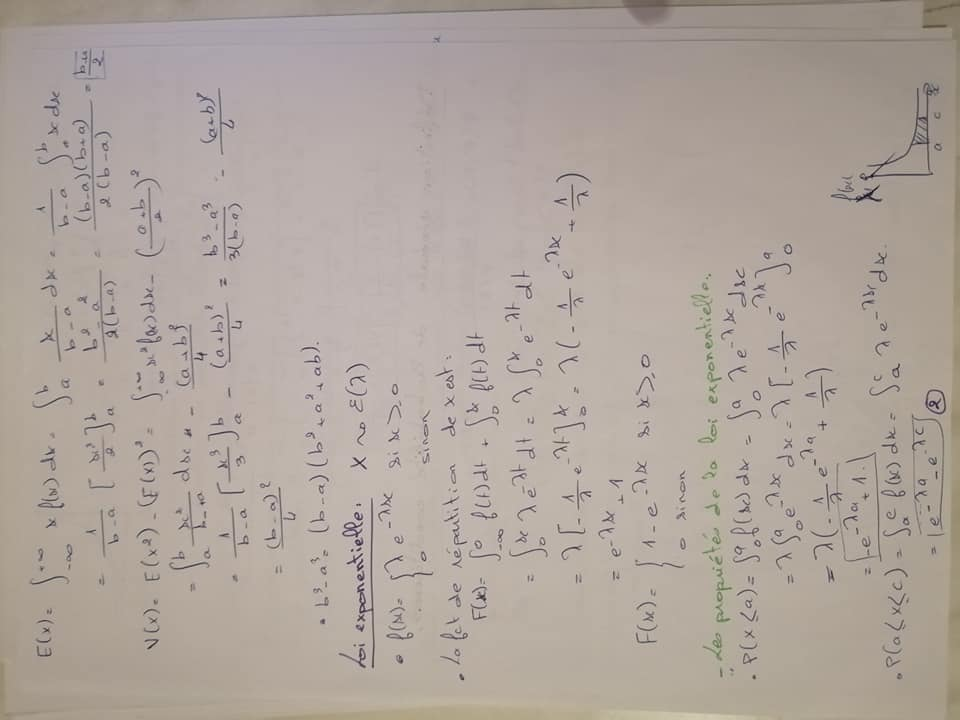 E(x) = ∫_{-∞}^{+∞} x f(x) dx = ∫_a^b x/(b-a) dx = 1/(b-a) ∫_a^b x dx
= 1/(b-a) [x²/2]_a^b = (b²-a²)/(2(b-a)) = (b-a)(b+a)/(2(b-a)) = (b+a)/2
V(x) = E(x²) - (E(x))² = ∫_{-∞}^{+∞} x² f(x) dx - ((a+b)/2)²
= ∫_a^b x²/(b-a) dx - (a+b)²/4
= 1/(b-a) [x³/3]_a^b - (a+b)²/4 = (b³-a³)/(3(b-a)) - (a+b)²/4
= (b-a)²/4
• b³-a³ = (b-a)(b²+a²+ab).
Loi exponentielle: X ~ E(λ)
• f(x) = { λ e^{-λx} si x ≥ 0
0 sinon
• La fct de répartition de x est:
F(x) = ∫_{-∞}^0 f(t) dt + ∫_0^x f(t) dt
= ∫_0^x λ e^{-λt} dt = λ ∫_0^x e^{-λt} dt
= λ [-1/λ e^{-λt}]_0^x = λ (-1/λ e^{-λx} + 1/λ)
= e^{-λx} + 1
F(x) = { 1 - e^{-λx} si x ≥ 0
0 sinon
- Les propriétés de la loi exponentielle:
• P(X ≤ a) = ∫_0^a f(x) dx = ∫_0^a λ e^{-λx} dx
= λ ∫_0^a e^{-λx} dx = λ [-1/λ e^{-λx}]_0^a
= λ (-1/λ e^{-λa} + 1/λ)
= -e^{-λa} + 1.
• P(a ≤ X ≤ c) = ∫_a^c f(x) dx = ∫_a^c λ e^{-λx} dx.
= e^{-λa} - e^{-λc}
2
f(x)
a c x